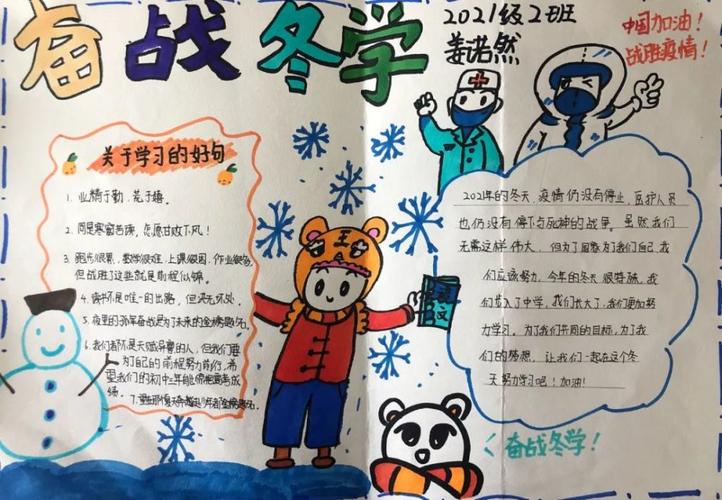 奋战冬学
2021级2班
姜诺然
中国加油！
战胜疫情！
关于学习的好句
1. 业精于勤，荒于嬉。
2. 同是寒窗苦读，怎愿甘拜下风！
3. 跑步很累，数学很难，上课很困，作业很多
但战胜了这些就是前程似锦。
4. 读书不是唯一的出路，但决无坏处。
5. 夜里的孤军奋战是为了未来的金榜题名。
6. 我们都不是天赋异禀的人，但我们要
为自己的前程努力前行，希
望我们的初中三年能
绩。
7.
语文
2021年的冬天，疫情仍没有停止，医护人员
也仍没有停下与死神的战斗。虽然我们
无需这样伟大，但为了国家为了我们自己，我
们应该努力，今年的冬天很特殊，我
们步入了中学，我们长大了，我们更加努
力学习。为了我们共同的目标，为了我
们的梦想，让我们一起在这个冬
天努力学习吧！加油！
奋战冬学！